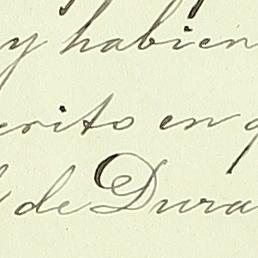 y habien
crito en
de Dura